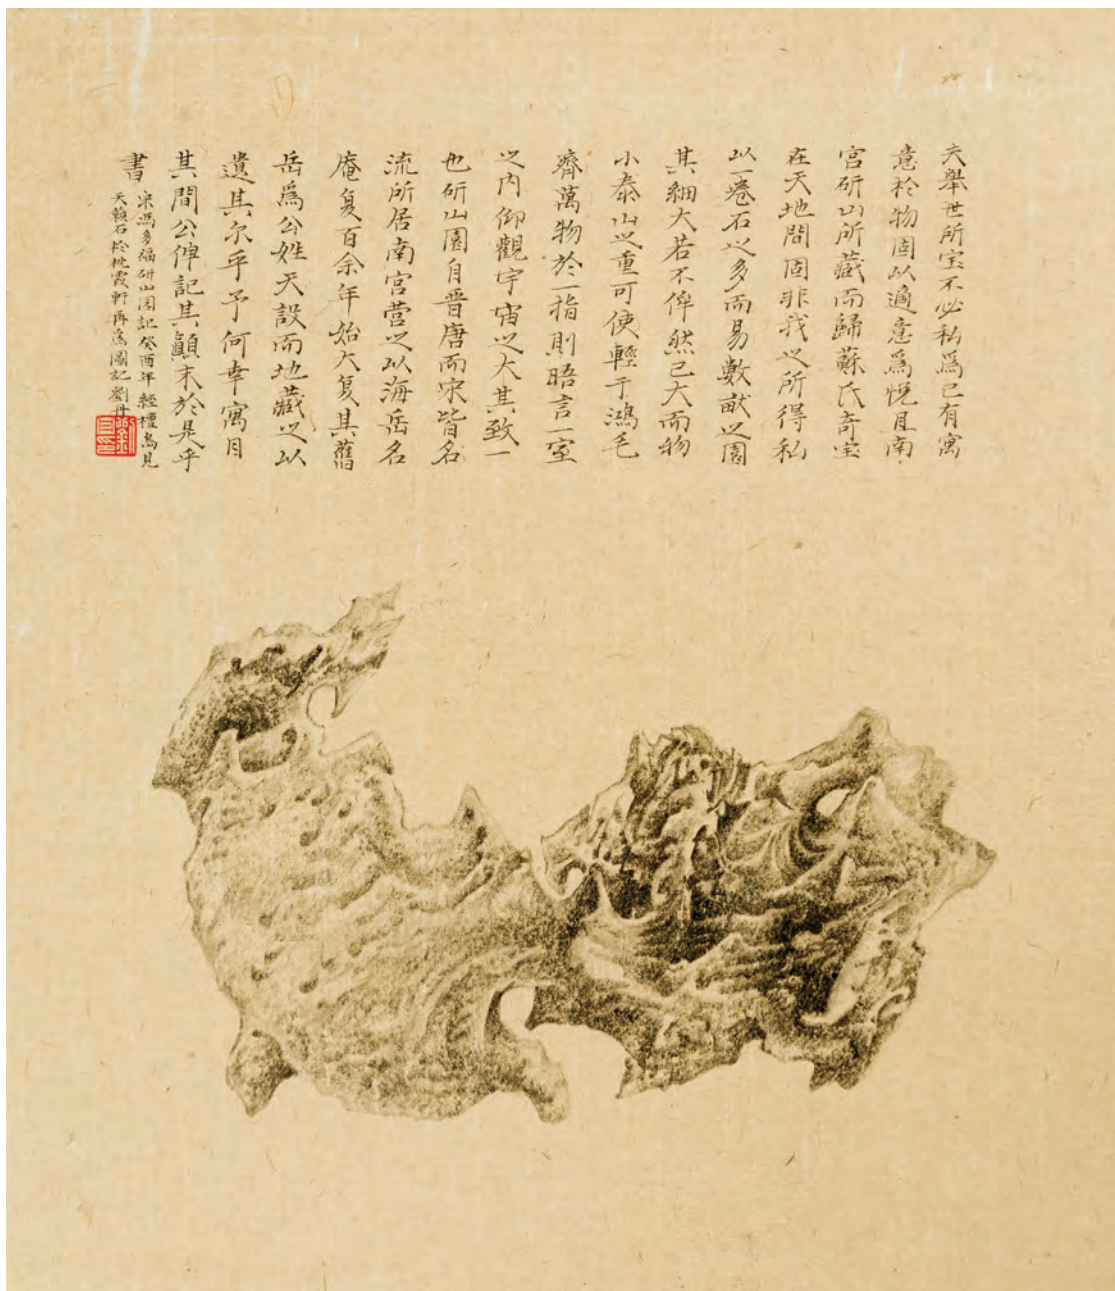 夫舉世所宝不必私爲已有寓
意於物固以適意爲悅且南
宮研山所藏而歸蘇氏奇宝
在天地間固非我之所得私
以一卷石之多而易數畝之園
其細大若不侔然已大而物
小泰山之重可使輕于鴻毛
齊萬物於一指則晤言一室
之内仰觀宇宙之大其致一
也研山園自晉唐而宋皆名
流所居南宮营之以海岳名
庵复百余年始大复其舊
岳爲公姓天設而地藏之以
遺其尔乎予何幸寓目
其間公俾記其顛末於是乎
書
宋馮多福研山園記癸酉年經檀島見
天籟石於桃霞軒再爲圖記劉丹